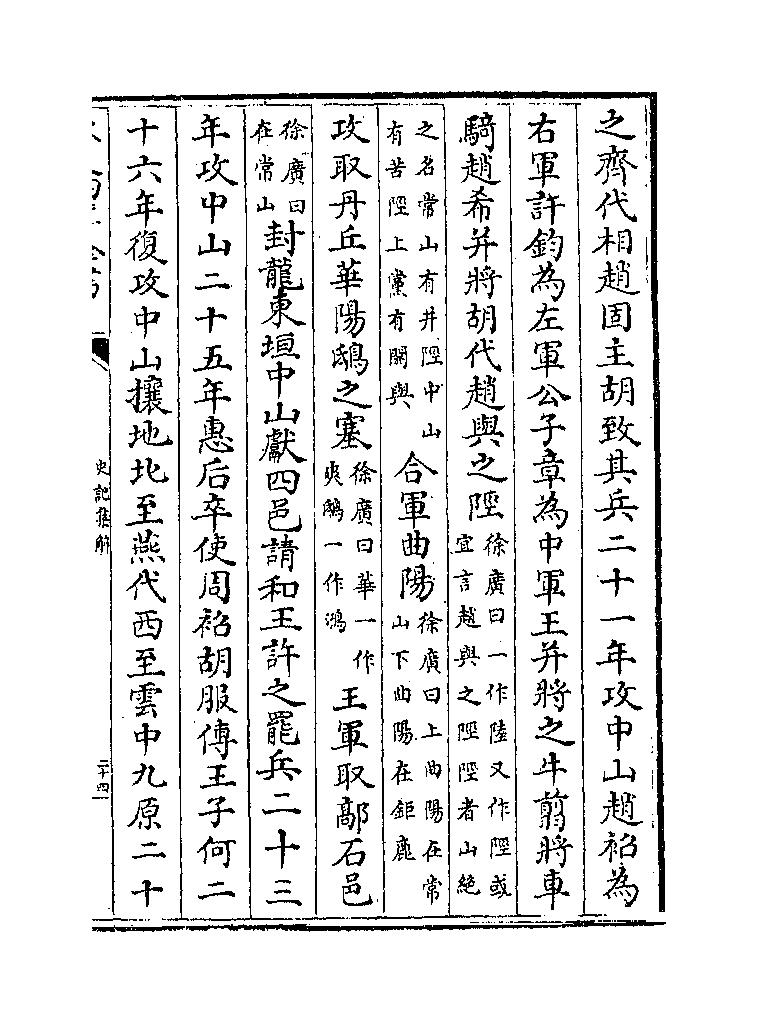 之齊代相趙固主胡致其兵二十一年攻中山趙袑為
右軍許鈞為左軍公子章為中軍王并將之牛翦將車
騎趙希并將胡代趙與之陘徐廣曰一作陸又作陘或宜言趙與之陘陘者山絶
之名常山有井陘中山有苦陘上黨有閼與合軍曲陽徐廣曰上曲陽在常山下曲陽在鉅鹿
攻取丹丘華陽鴟之塞徐廣曰華一作爽鴟一作鴻王軍取鄗石邑
徐廣曰在常山封龍東垣中山獻四邑請和王許之罷兵二十三
年攻中山二十五年惠后卒使周袑胡服傅王子何二
十六年復攻中山攘地北至燕代西至雲中九原二十
史記集解
二十四